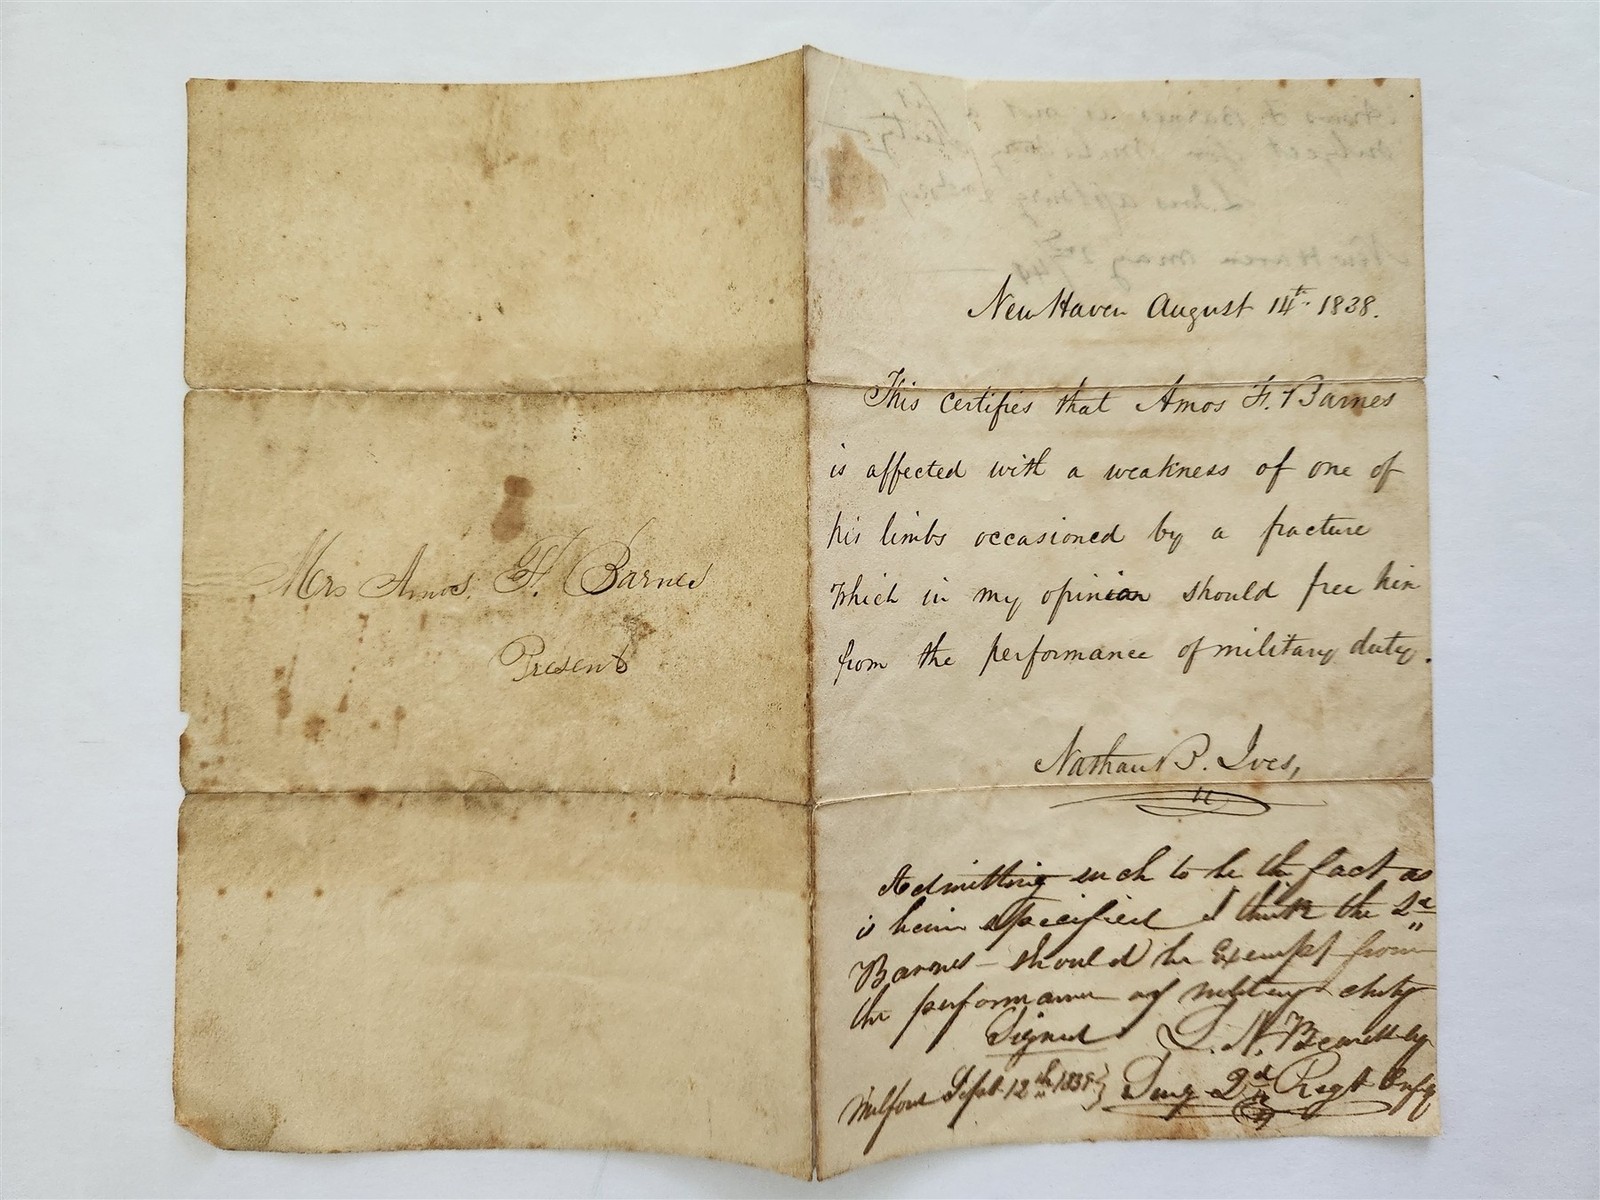 Mrs Amos. F. Barnes
Present
New Haven August 14th. 1838.
This certifies that Amos F. Barnes
is affected with a weakness of one of
his limbs occasioned by a fracture
which in my opinion should free him
from the performance of military duty.
Nathan B. Ives,
Admitting such to be the fact as
is herein specified I think the Sd
Barnes - should be Exempt from
the performance of military duty
Signed L. N. Beardsley
Milford Sept. 12th 1838} Surg 2d Regt Infy